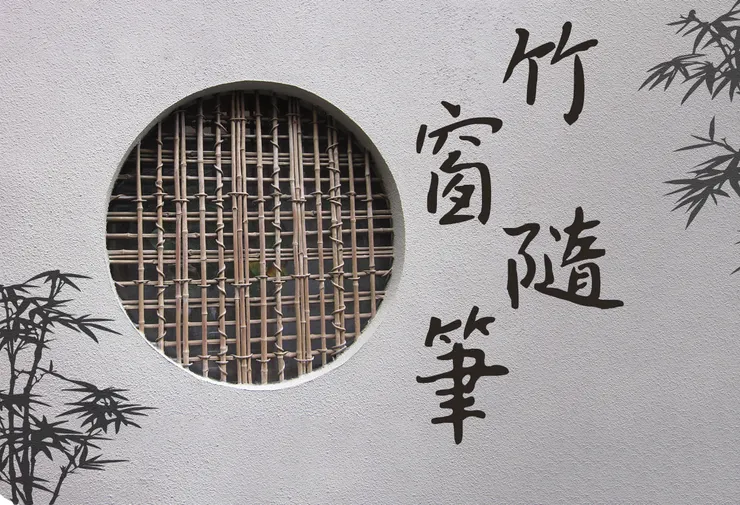 竹窗隨筆